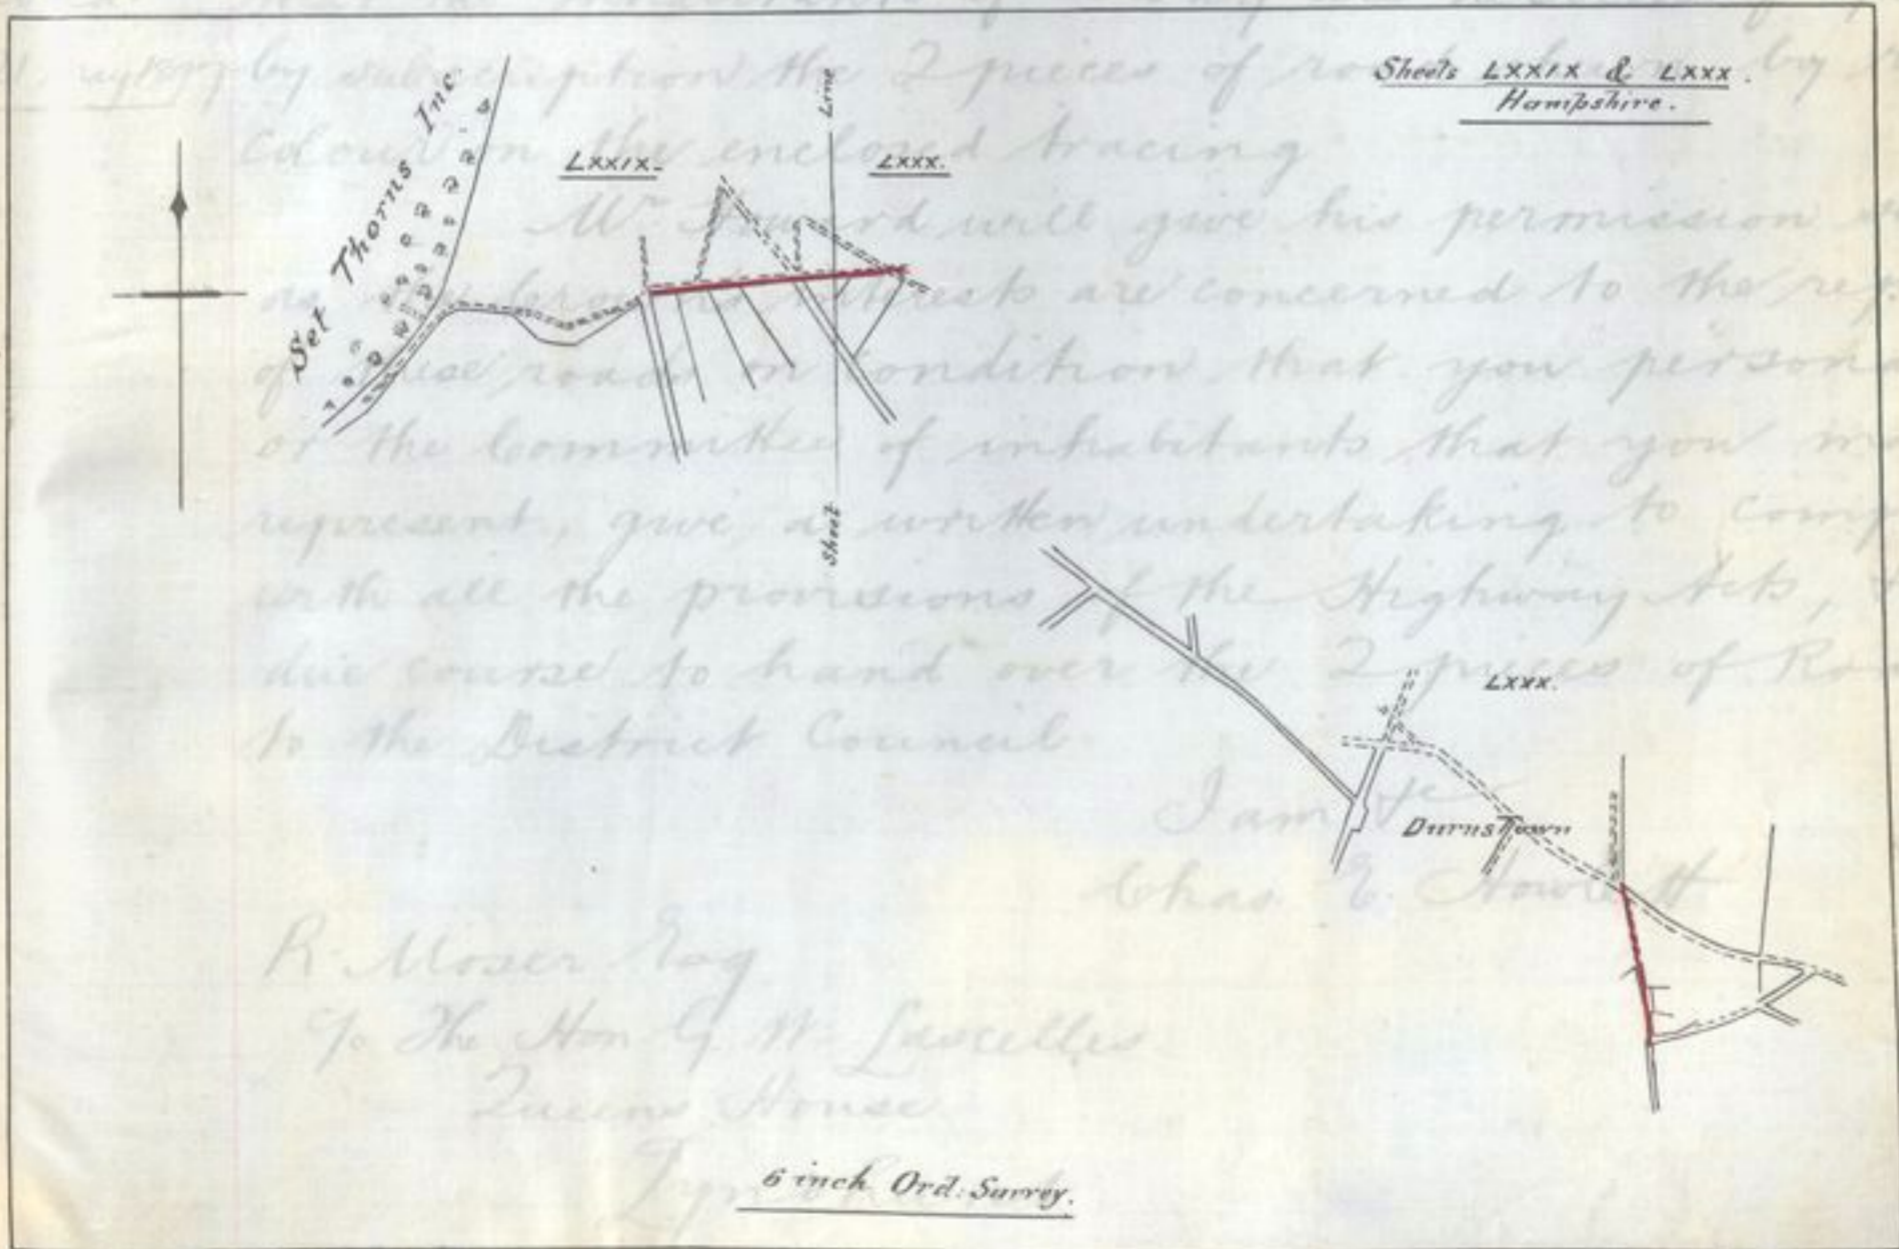 Sheets LXXIX & LXXX.
Hampshire.
Set Thorns Inc
LXXIX.
Line
LXXX.
Sheet
LXXX.
Durns Town
6 inch Ord: Survey.
by subscription the 2 pieces of road by
colour on the enclosed tracing
Mr will give his permission
as interests are concerned to the
of these roads on condition that you
or the Committee of inhabitants that you
represent, give a written undertaking to
with all the provisions of the Highway Acts,
due course to hand over the 2 pieces of
to the District Council
I am &c
Chas. E. Howlett
R. Moser Esq
c/o The Hon G. W. Lascelles
Queens House